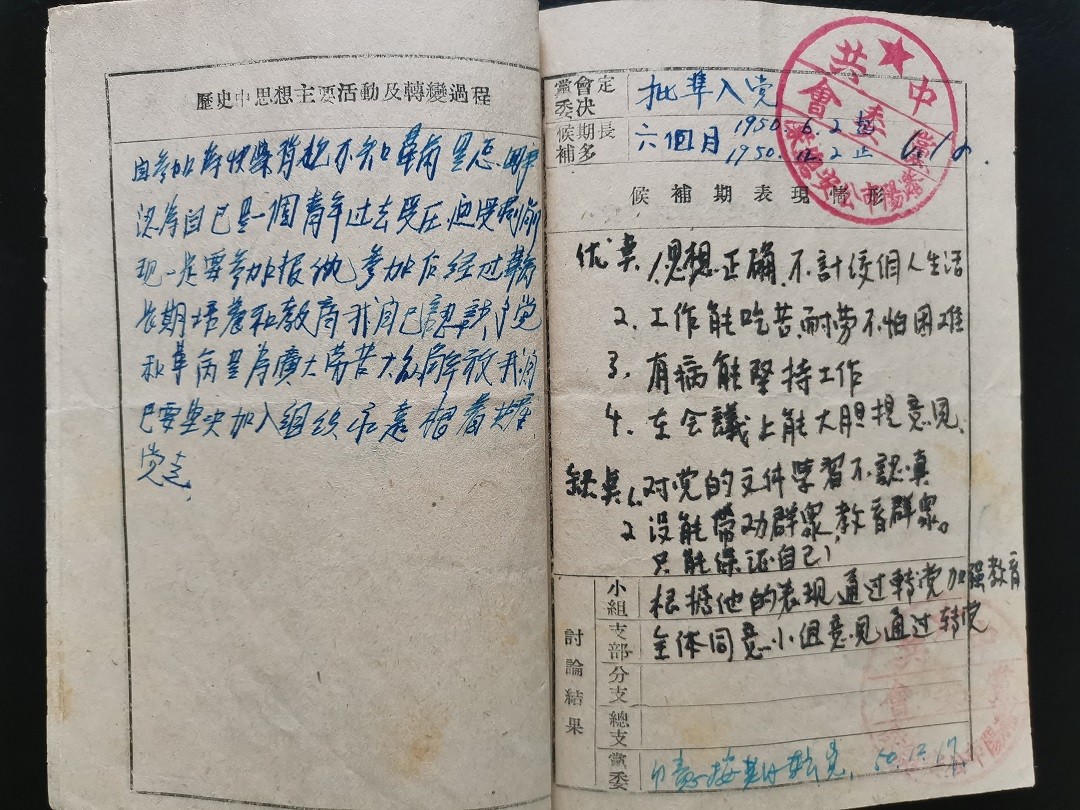 歷史中思想主要活動及轉變過程
自參加
認為自己是一個青年过去受压
現一定要参加报仇参加后经过革命
長期培養和教育我自己認識了党
和革命是为廣大劳苦大众解放我自
已要坚决加入组织 着共產
党走
黨委會决定
批準入党
候補期多長
六個月
1950.6.2起
1950.12.2止
中共
委會
候補期表現情形
优奌 1.思想正确不計较個人生活
2.工作能吃苦耐劳不怕困难
3.有病能坚持工作
4.在会議上能大胆提意見、
缺奌 1.对党的文件学習不認真
2没能带动群众,教育群众。
只能保证自己
討論結果
小組
根據他的表現通过转党加强教育
支部
全体同意小组意見通过转党
分支
總支
黨委
50.12.17